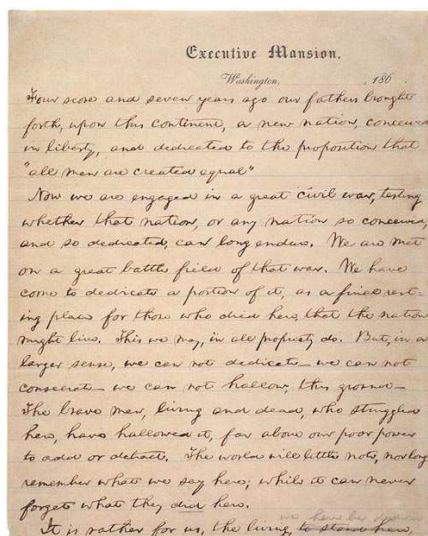 Executive Mansion,
Washington, , 186 .
Four score and seven years ago our fathers brought
forth, upon this continent, a new nation, conceived
in liberty, and dedicated to the proposition that
"all men are created equal"
Now we are engaged in a great civil war, testing
whether that nation, or any nation so conceived,
and so dedicated, can long endure. We are met
on a great battle field of that war. We have
come to dedicate a portion of it, as a final rest-
ing place for those who died here, that the nation
might live. This we may, in all propriety do. But, in a
larger sense, we can not dedicate — we can not
consecrate — we can not hallow, this ground —
The brave men, living and dead, who struggled
here, have hallowed it, far above our poor power
to add or detract. The world will little note, nor long
remember what we say here; while it can never
forget what they did here.
we here be
It is rather for us, the living, to stand here,